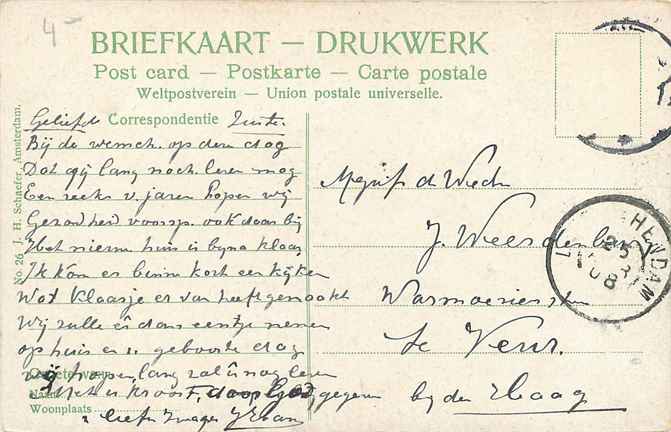 4-
BRIEFKAART — DRUKWERK
Post card — Postkarte — Carte postale
Weltpostverein — Union postale universelle.
No. 26 J. H. Schaefer, Amsterdam.
Correspondentie
Geliefde Zuster
Bij de wensch op dezen dag
Dat gij lang noch leven mag
Een reeks v. jaren hopen wij
Gezondheid voorsp. ook daar bij
Het nieuw huis is byna klaar
Ik kom er binne kort een kijken
Wat Klaasje er van heeft gemaakt
Wij zulle dans eentje nemen
op huis en geboorte dag
hopen lang zal u nog leven
gegeven
liefh Zwager
Naam
Woonplaats
Mejuf d Wed
J. Weerdenburg
Warmoezier
te Veur.
by den Haag
HENDAM
25
08